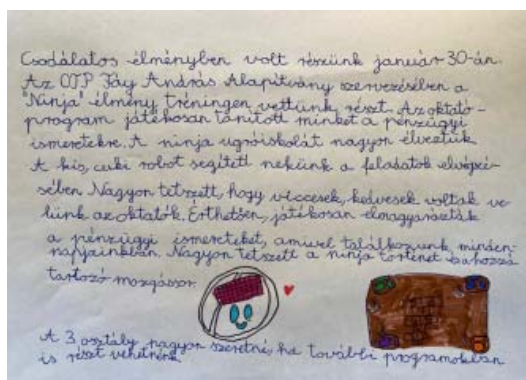 Csodálatos élményben volt részünk január 30-án.
Az OTP Fáy András Alapítvány szervezésében a
"Ninja" élmény tréningen vettünk részt. Az oktató-
program játékosan tanított minket a pénzügyi
ismeretekre. A ninja ugróiskolát nagyon élveztük
A kis, cuki robot segített nekünk a feladatok elvégzé-
sében. Nagyon tetszett, hogy viccesek, kedvesek voltak ve-
lünk az oktatók. Érthetően, játékosan elmagyarázták
a pénzügyi ismereteket, amivel találkozunk minden-
napjainkban. Nagyon tetszett a ninja történet s a hozzá
tartozó mozgássor.
A 3. osztály nagyon szeretné, ha további programokban
is részt vehetnénk